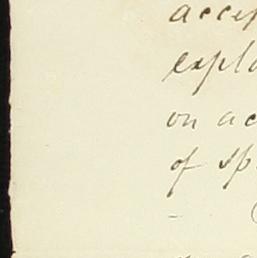 accep
expla
on ac
of sp
-